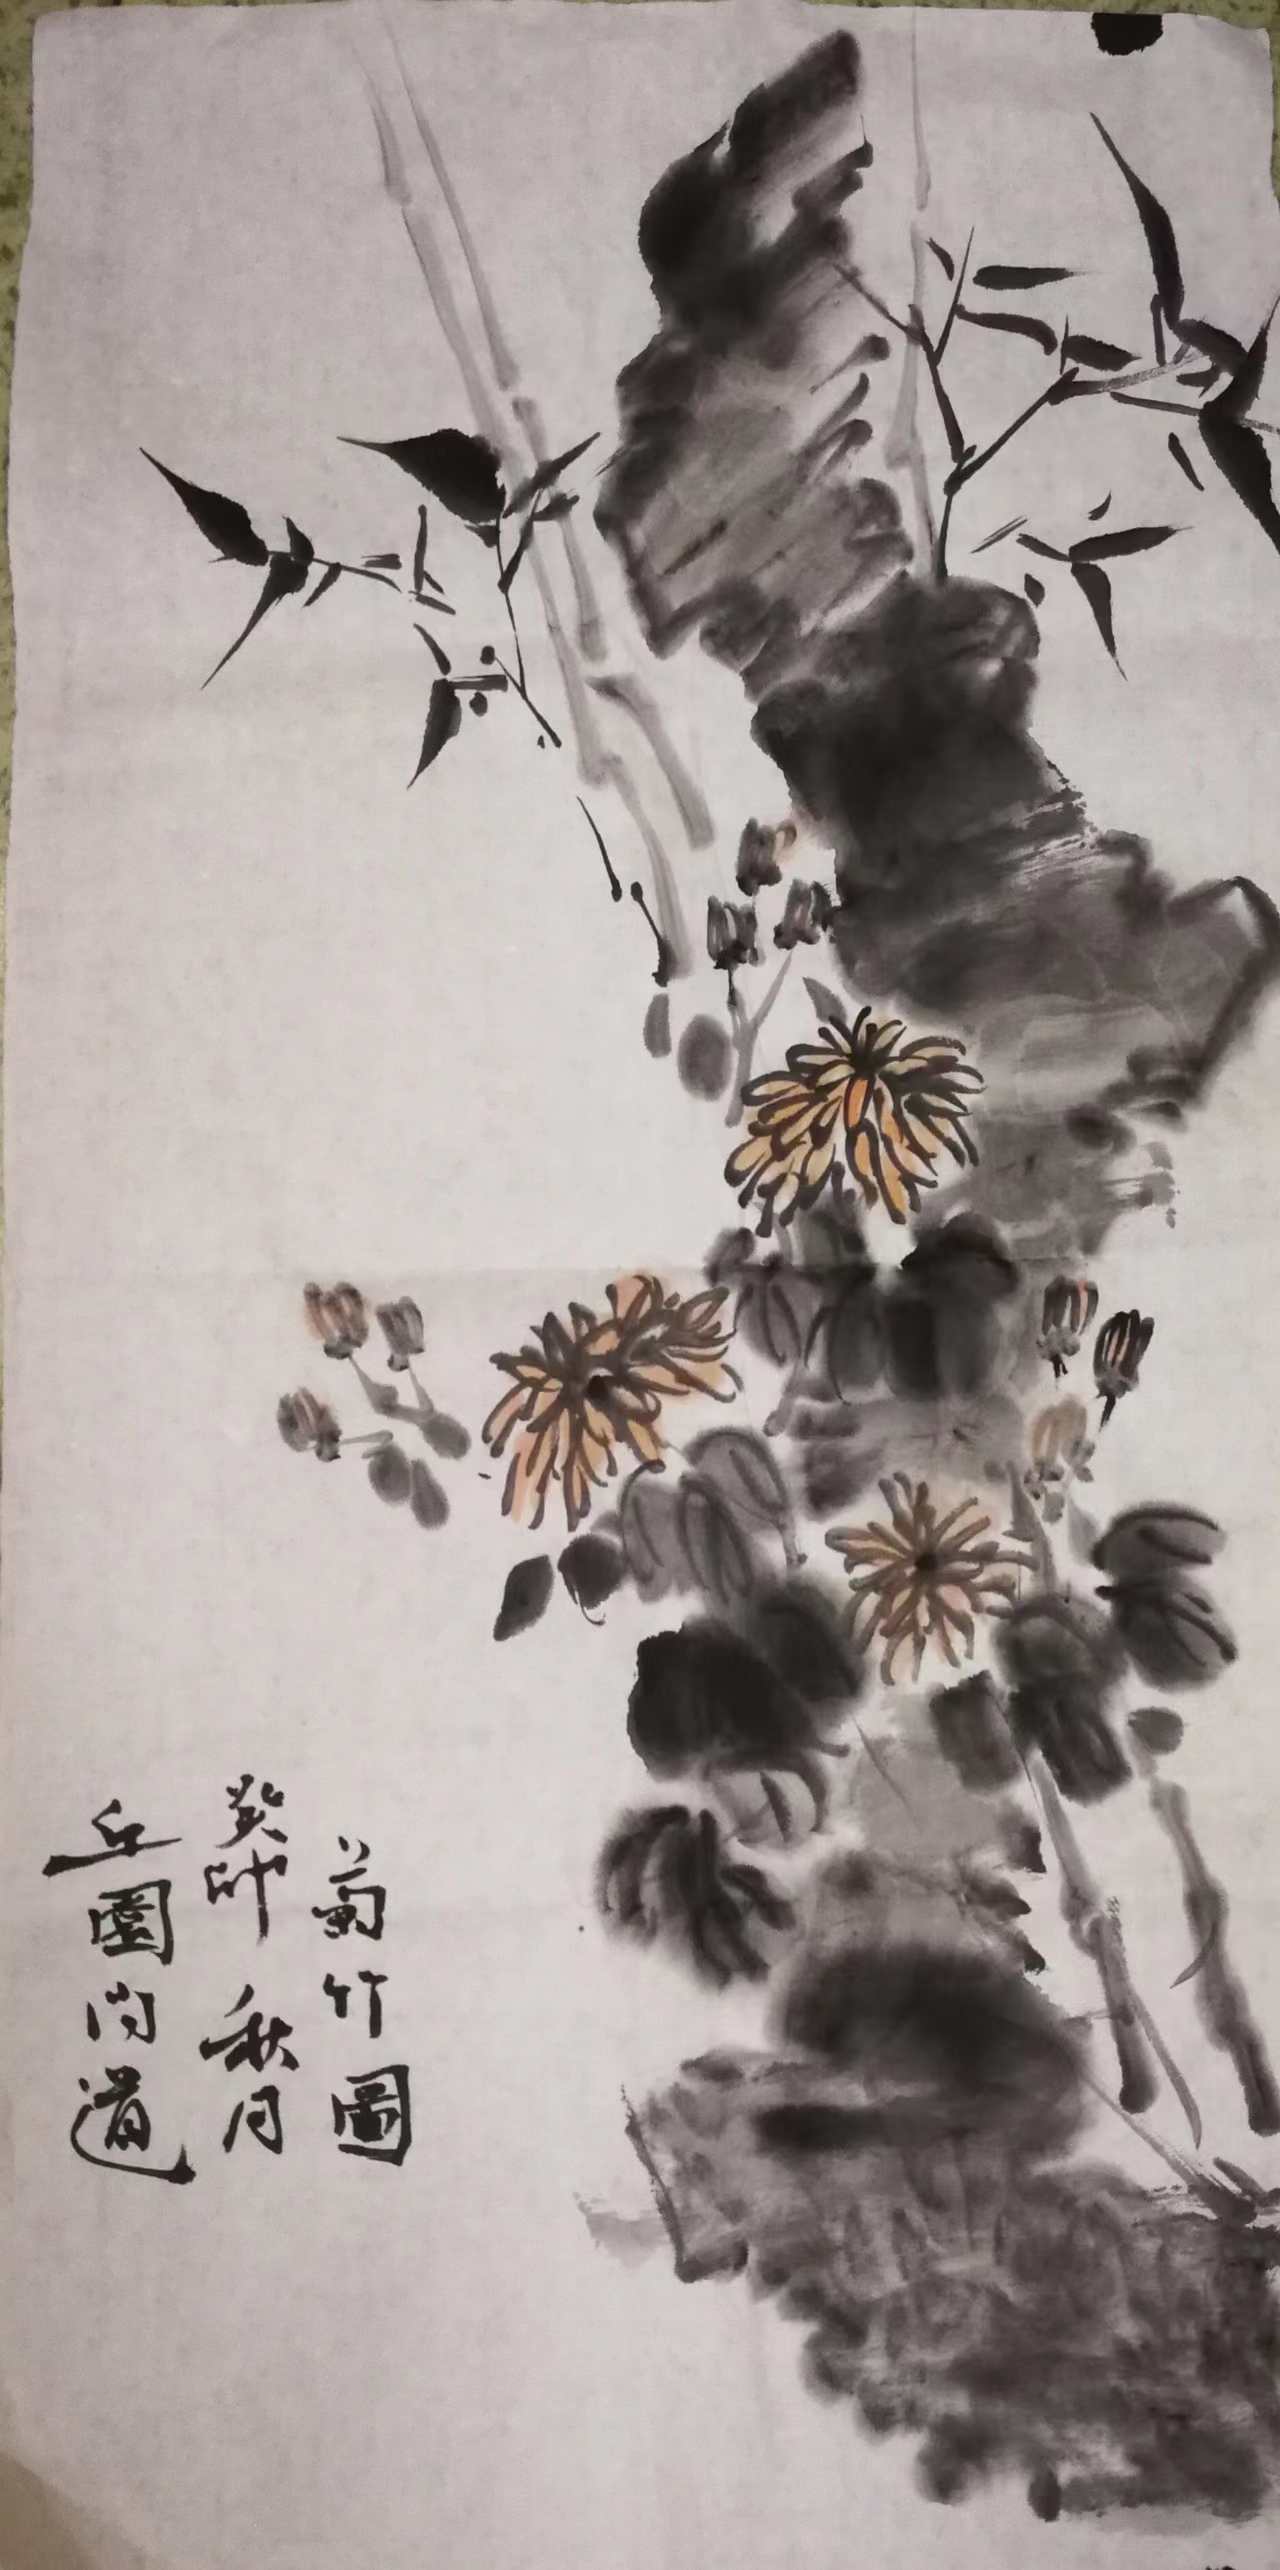 菊竹圖
癸卯秋月
丘園问道